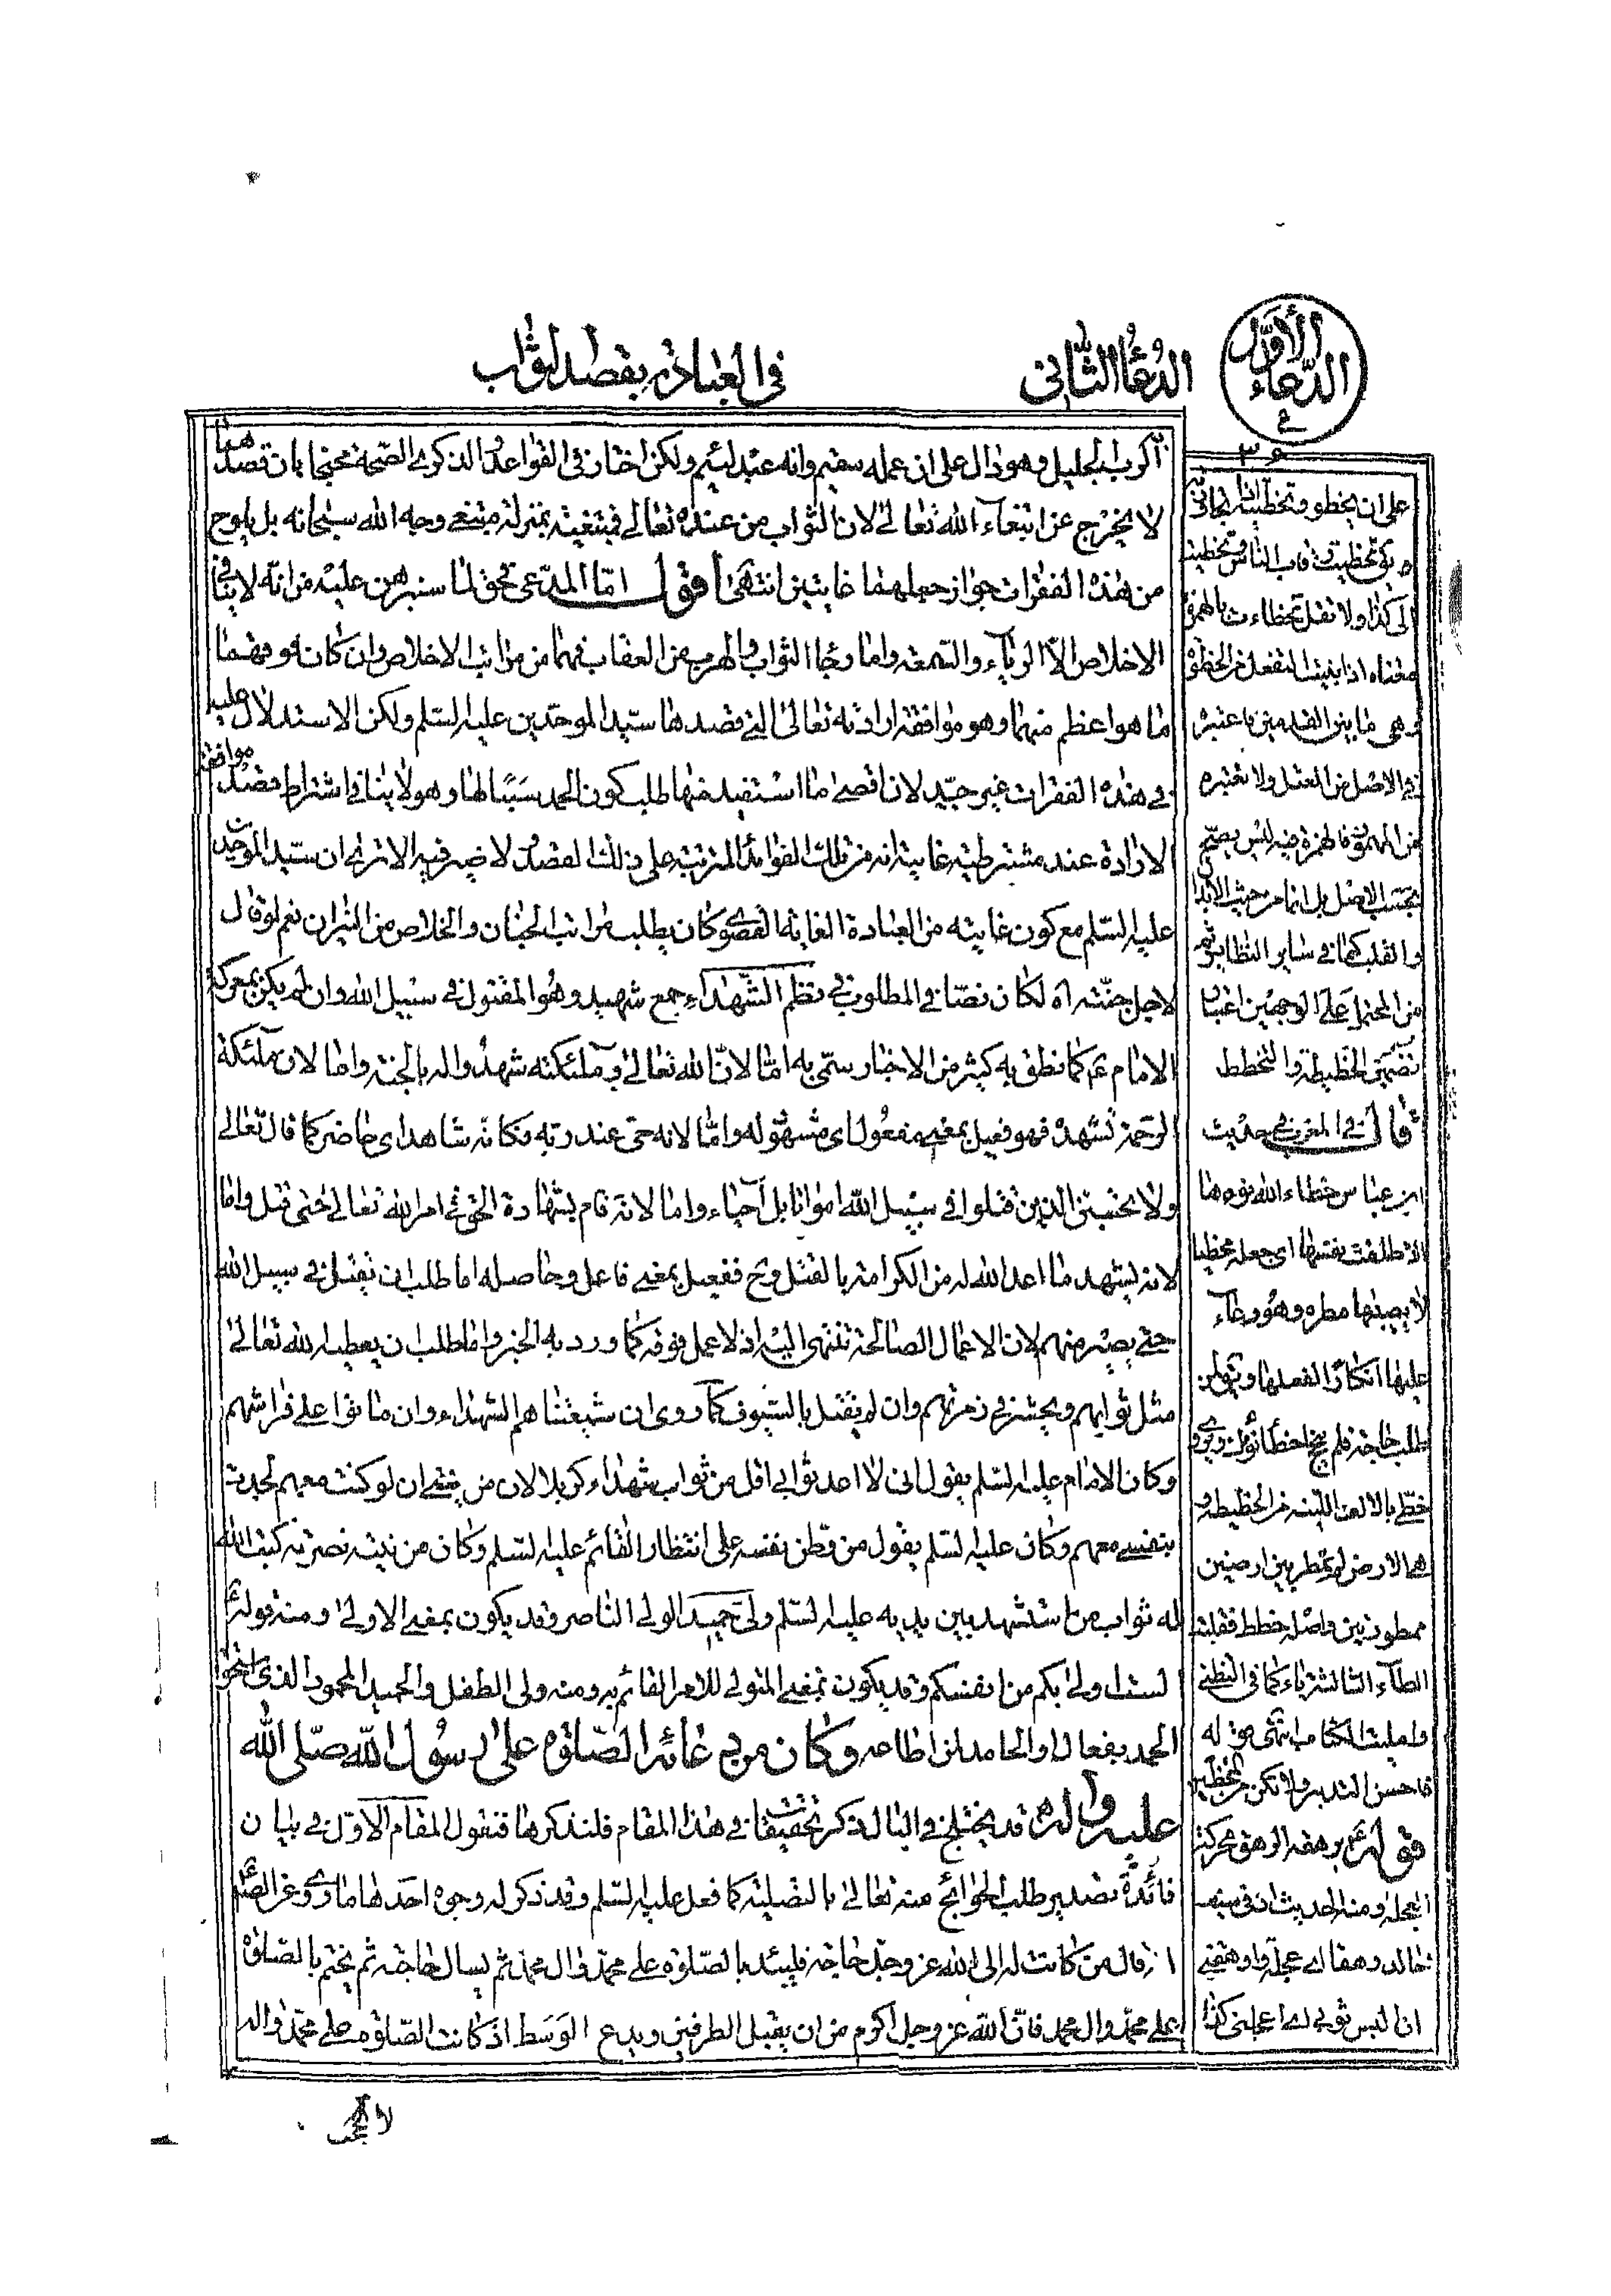 الدعاء الأول
في العبادة بقصد الثواب
الدعاء الثاني
٣٤
لرب الجليل وهو دال على ان عمله سقيم وانه عبد لئيم ولكن اختار في القواعد والذكرى الصحة محتجا بان قصدها
لا يخرج عن ابتغاء الله تعالى لان الثواب من عنده تعالى فمبتغيه بمنزلة مبتغى وجه الله سبحانه بل يلوح
من هذه الفقرات جواز جعلهما غايتين انتهى اقول اما المدعى فحق لما سنبرهن عليه من انه لا ينافي
الاخلاص الا الرياء والسمعة واما رجاء الثواب والهرب من العقاب فهما من مراتب الاخلاص وان كان فوقهما
ما هو اعظم منهما وهو موافقة ارادته تعالى التي قصدها سيد الموحدين عليه السلم ولكن الاستدلال عليه
في هذه الفقرات غير جيد لان اقصى ما استفيد منها طلب كون الحمد سببا لها وهو لا ينافي اشتراط قصد موافقة
الارادة عند مشترطيه غايته انه من تلك الفوائد المترتبة على ذلك القصد ولا ضير فيه الا ترى ان سيد الموحدين
عليه السلم مع كون غايته من العبادة الغاية القصوى كان يطلب مراتب الجنان والخلاص من النيران نعم لو قال
لاجل جنته اه لكان نصا في المطلوب في نظم الشهداء جمع شهيد وهو المقتول في سبيل الله وان لم يكن بمعركة
الامام ع كما نطق به كثير من الاخبار سمى به اما لان الله تعالى وملئكته شهدوا له بالجنة واما لان ملئكة
الرحمة تشهده فهو فعيل بمعنى مفعول اى مشهود له واما لانه حى عند ربه فكانه شاهد اى حاضر كما قال تعالى
ولا تحسبن الذين قتلوا في سبيل الله امواتا بل احياء واما لانه قام بشهادة الحق في امر الله تعالى حتى قتل واما
لانه يشهد ما اعد الله له من الكرامة بالقتل وح ففعيل بمعنى فاعل وحاصله اما طلب ان يقتل في سبيل الله
حتى يصير منهم لان الاعمال الصالحة تنتهى اليه اذ لا عمل فوقه كما ورد به الخبر واما طلب ان يعطيه الله تعالى
مثل ثوابهم ويحشر في زمرتهم وان لم يقتل بالسيوف كما روى ان شيعتنا هم الشهداء وان ماتوا على فراشهم
وكان الامام عليه السلم يقول انى لا اعد ثوابى اقل من ثواب شهداء كربلا لان من نيتى ان لو كنت معهم لجدت
بنفسى معهم وكان عليه السلم يقول من وطن نفسه على انتظار القائم عليه السلم وكان من نيته نصرته كتب الله
له ثواب من استشهد بين يديه عليه السلم ولى حميد الولى الناصر وقد يكون بمعنى الاولى ومنه قوله
الست اولى بكم من انفسكم وقد يكون بمعنى المتولى للامر القائم به ومنه ولى الطفل والحميد المحمود الذى استحق
الحمد بفعاله او الحامد لمن اطاعه وكان من دعائه الصلوة على رسول الله صلى الله
عليه واله قد يختلج في البال ذكر تحقيقات في هذا المقام فلنذكرها فنقول المقام الاول في بيان
فائدة تصدير طلب الحوائج منه تعالى بالتصلية كما فعل عليه السلم وقد ذكر له وجوه احدها ما روى عن الص
انه قال من كانت له الى الله عز وجل حاجة فليبدء بالصلوة على محمد وال محمد ثم يسال حاجته ثم يختم بالصلوة
على محمد وال محمد فان الله عز وجل اكرم من ان يقبل الطرفين ويدع الوسط اذ كانت الصلوة على محمد واله
لا تحجب
على ان يخطو وتخطيته تجاوزته
ويق تخطيت رقاب الناس وتخطيت
الى كذا ولا تقل تخطاءت بالهمز
معناه اذا بنيت التفعل من الخطوة
وهى ما بين القدمين
في الاصل من العتل ولا تعتبره
من المهموز فالهمزة فيه ليس بصحيح
بحسب الاصل بل انما من حيث الابدال
والقلب كما في ساير النظاير ثم
من المحتمل على الوجهين اعتبار
تضمين الخطيطة والتخطط
قال في المغرب في حديث
ابن عباس خطاء الله نوءها
الا طلقت نفسها اى جعله مخطيا
لا يصيبها مطره وهو دعاء
عليها انكارا لفعلها ويق لمن
طلب حاجة فلم ينجح اخطأ نوءك ويروى
خطى بالالف اللينة من الخطيطة و
هى الارض لم تمطر بين ارضين
ممطورتين واصله خطط فقلبت
الطاء الثالثة ياء كما في التظنى
وامليت الكتاب انتهى قوله
فاحسن التدبر ولا تكن من المخطئين
قوله ع يرهقه الرهق محركة
العجلة ومنه الحديث ان في سيف
خالد رهقا اى عجلة وارهقنى
ان البس ثوبى اى اعجلنى كذا